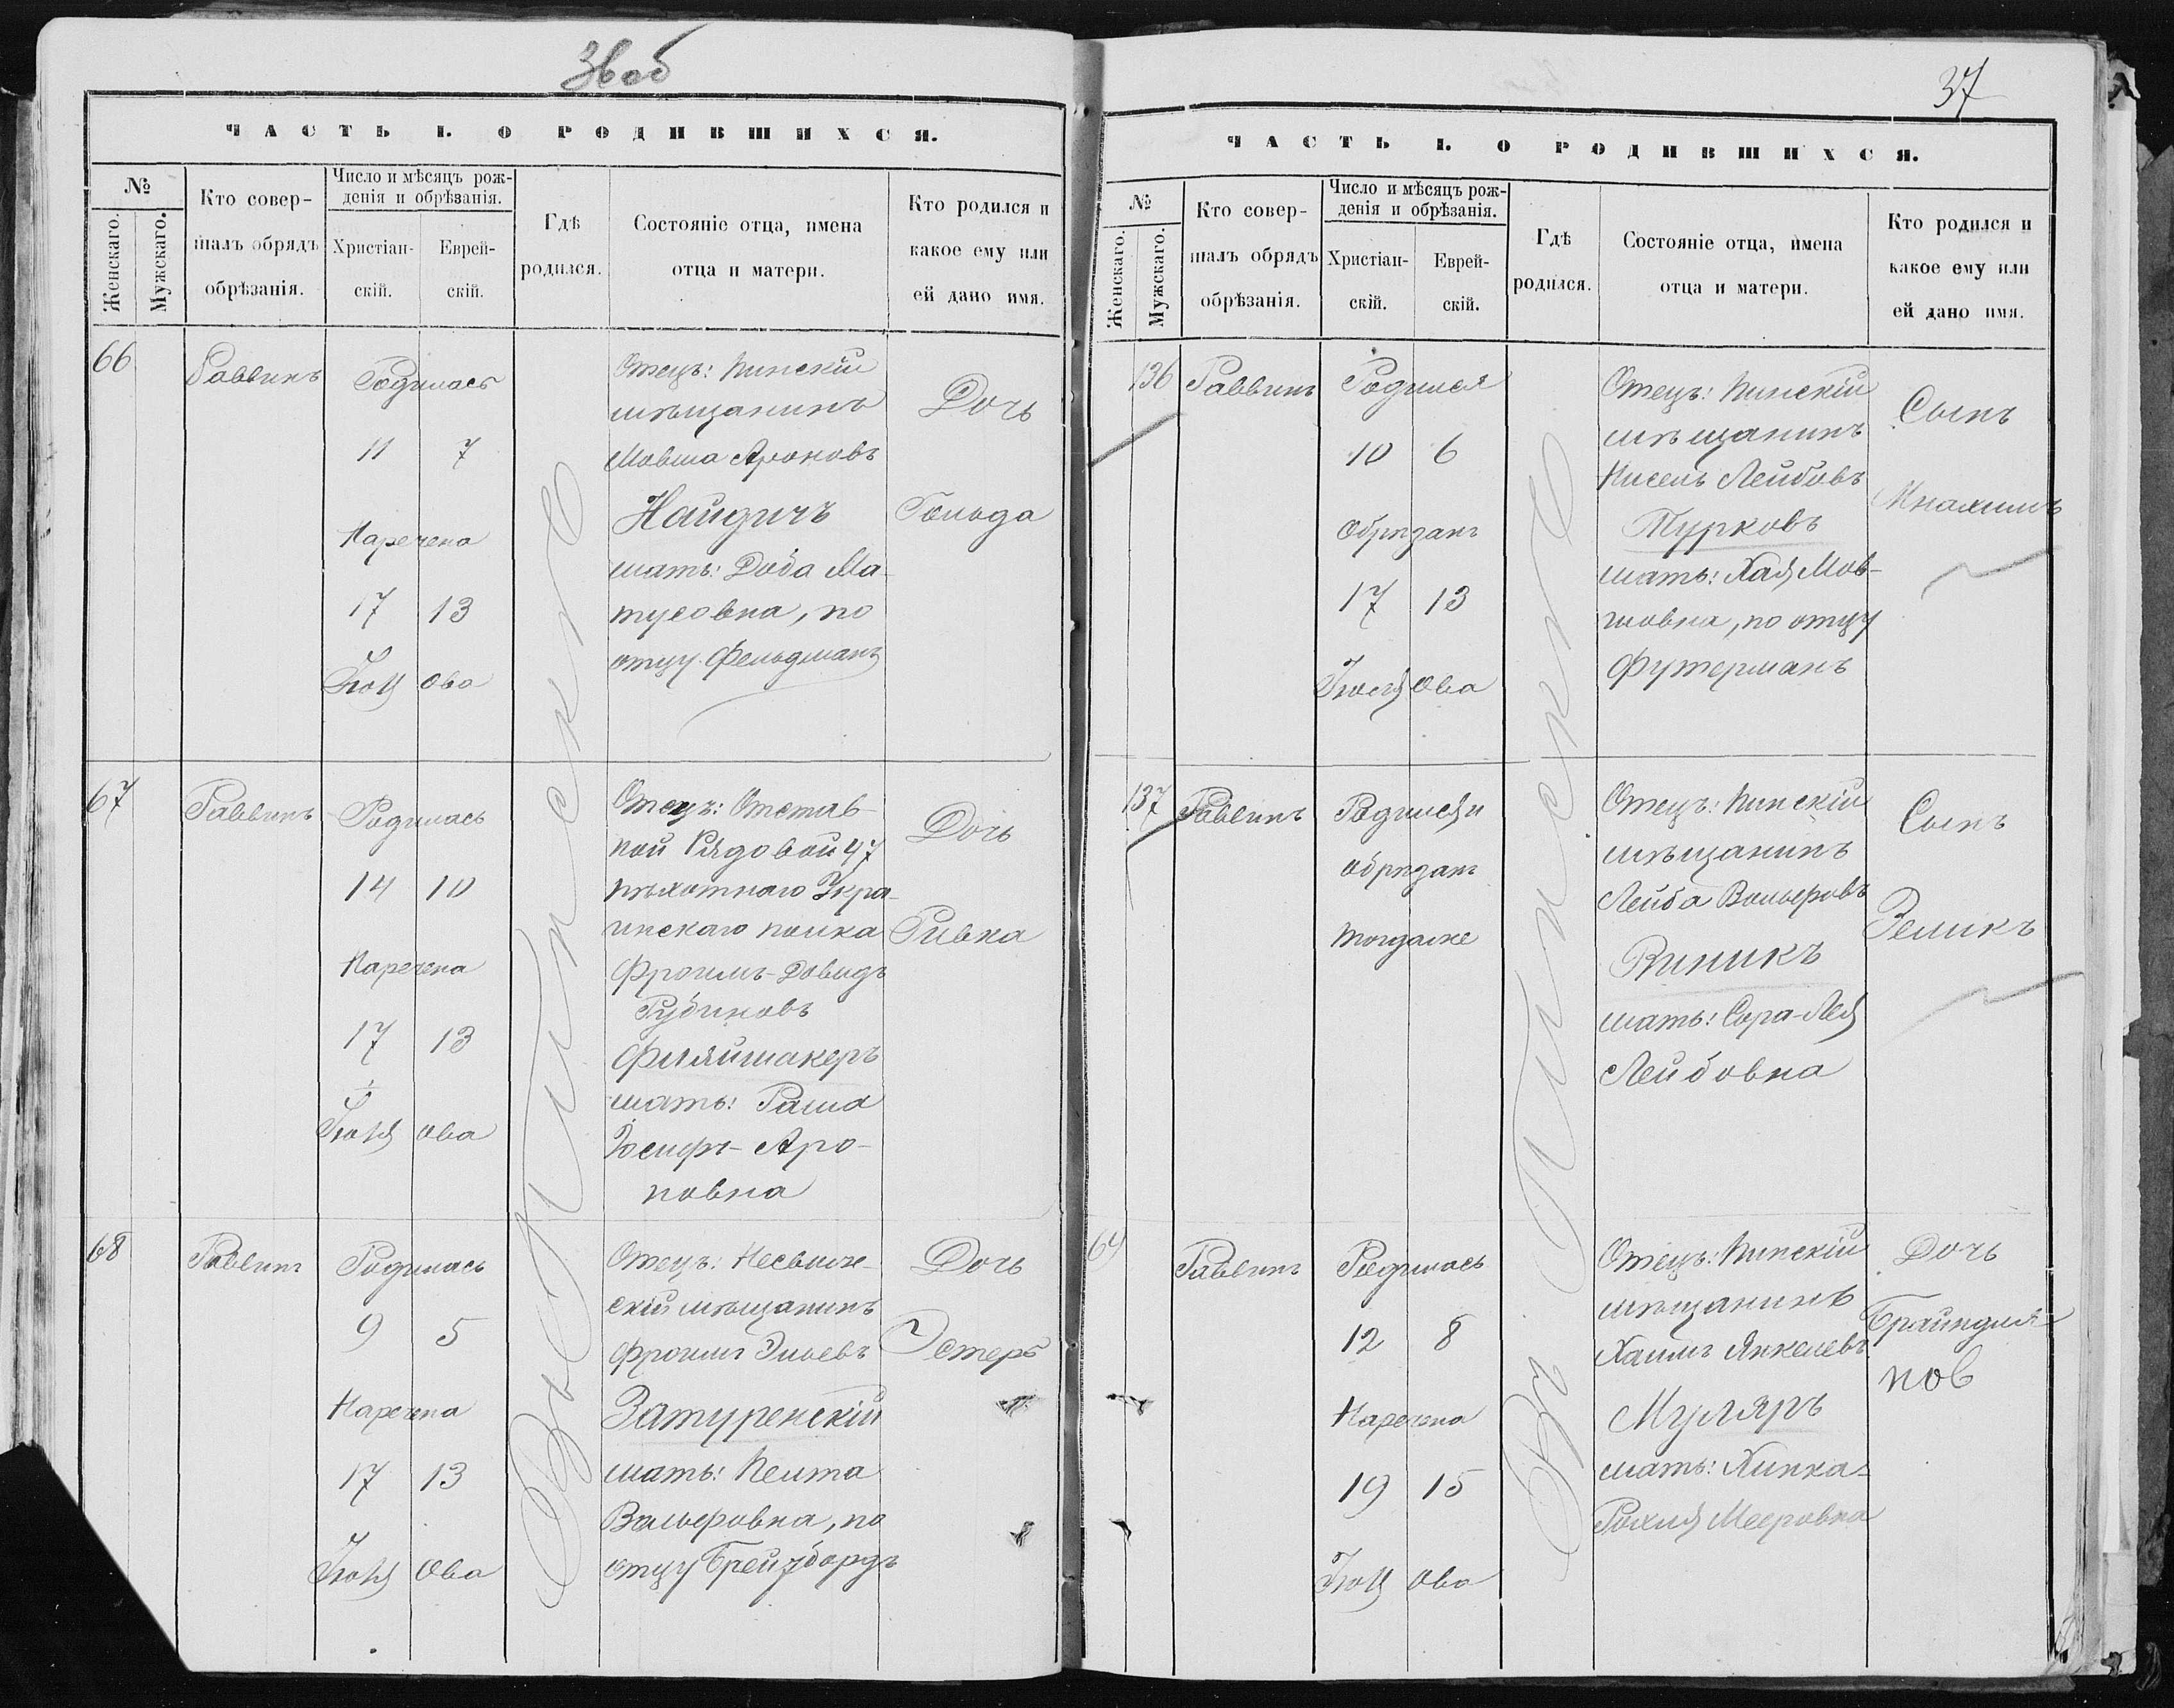 36 об
ЧАСТЬ I. О РОДИВШИХСЯ.
№
Женскаго.
Мужскаго.
Кто совер-
шалъ обрядъ
обрѣзанія.
Число и мѣсяцъ рож-
денія и обрѣзанія.
Христіан-
скій.
Еврей-
скій.
Гдѣ
родился.
Состояніе отца, имена
отца и матери.
Кто родился и
какое ему или
ей дано имя.
66
Раввинъ
Родилась
11 7
Наречена
17 13
Іюня Ова
Въ Пинскѣ
Отецъ: Пинскій
мѣщанинъ
Мовша Ароновъ
Найдичъ
мать: Доба Ма-
тусовна, по
отцу Фельдманъ
Дочь
Гольда
67
Раввинъ
Родилась
14 10
Наречена
17 13
Іюня Ова
Отецъ: Отстав-
ной Рядовой 47
пѣхотнаго Укра-
инскаго полка
Фроимъ-Довидъ
Рубиновъ
Фляймакеръ
мать: Раша
Іосифъ-Аро-
новна
Дочь
Ривка
68
Раввинъ
Родилась
9 5
Наречена
17 13
Іюня Ова
Отецъ: Несвиж-
скій мѣщанинъ
Фроимъ Эльевъ
Затуренскій
мать: Пешта
Вольфовна, по
отцу Брейзбордъ
Дочь
Эстеръ
37
ЧАСТЬ I. О РОДИВШИХСЯ.
№
Женскаго.
Мужскаго.
Кто совер-
шалъ обрядъ
обрѣзанія.
Число и мѣсяцъ рож-
денія и обрѣзанія.
Христіан-
скій.
Еврей-
скій.
Гдѣ
родился.
Состояніе отца, имена
отца и матери.
Кто родился и
какое ему или
ей дано имя.
136
Раввинъ
Родился
10 6
Обрѣзанъ
17 13
Іюня Ова
Въ Пинскѣ
Отецъ: Пинскій
мѣщанинъ
Нисель Лейбовъ
Турковъ
мать: Хая Мов-
шовна, по отцу
Футерманъ
Сынъ
Мнахимъ
137
Раввинъ
Родился и
обрѣзанъ
тогдаже
Отецъ: Пинскій
мѣщанинъ
Лейба Вольфовъ
Виникъ
мать: Сора-Лея
Лейбовна
Сынъ
Зеликъ
69
Раввинъ
Родилась
12 8
Наречена
19 15
Іюня Ова
Отецъ: Пинскій
мѣщанинъ
Хаимъ Янкелевъ
Муляръ
мать: Хинка-
Рохля Мееровна
Дочь
Брайндля